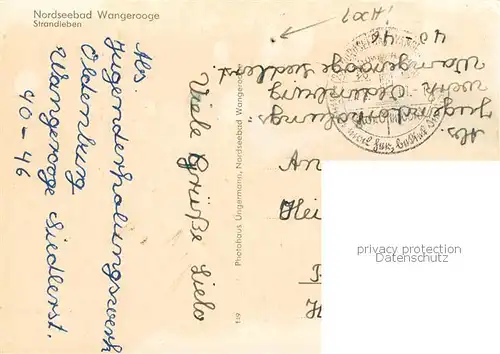 Nordseebad Wangerooge
Strandleben
Abs.
Jugenderholungswerk
Oldenburg
Wangerooge Siedlerst.
40-46
Viele Grüße Lielo
Photohaus Ungermann, Nordseebad Wangerooge
Abs.
Jugenderholungs
werk Oldenburg
Wangerooge Siedlerst.
40-46
An
Hei
privacy protection
www.ansichtskartenversand.com